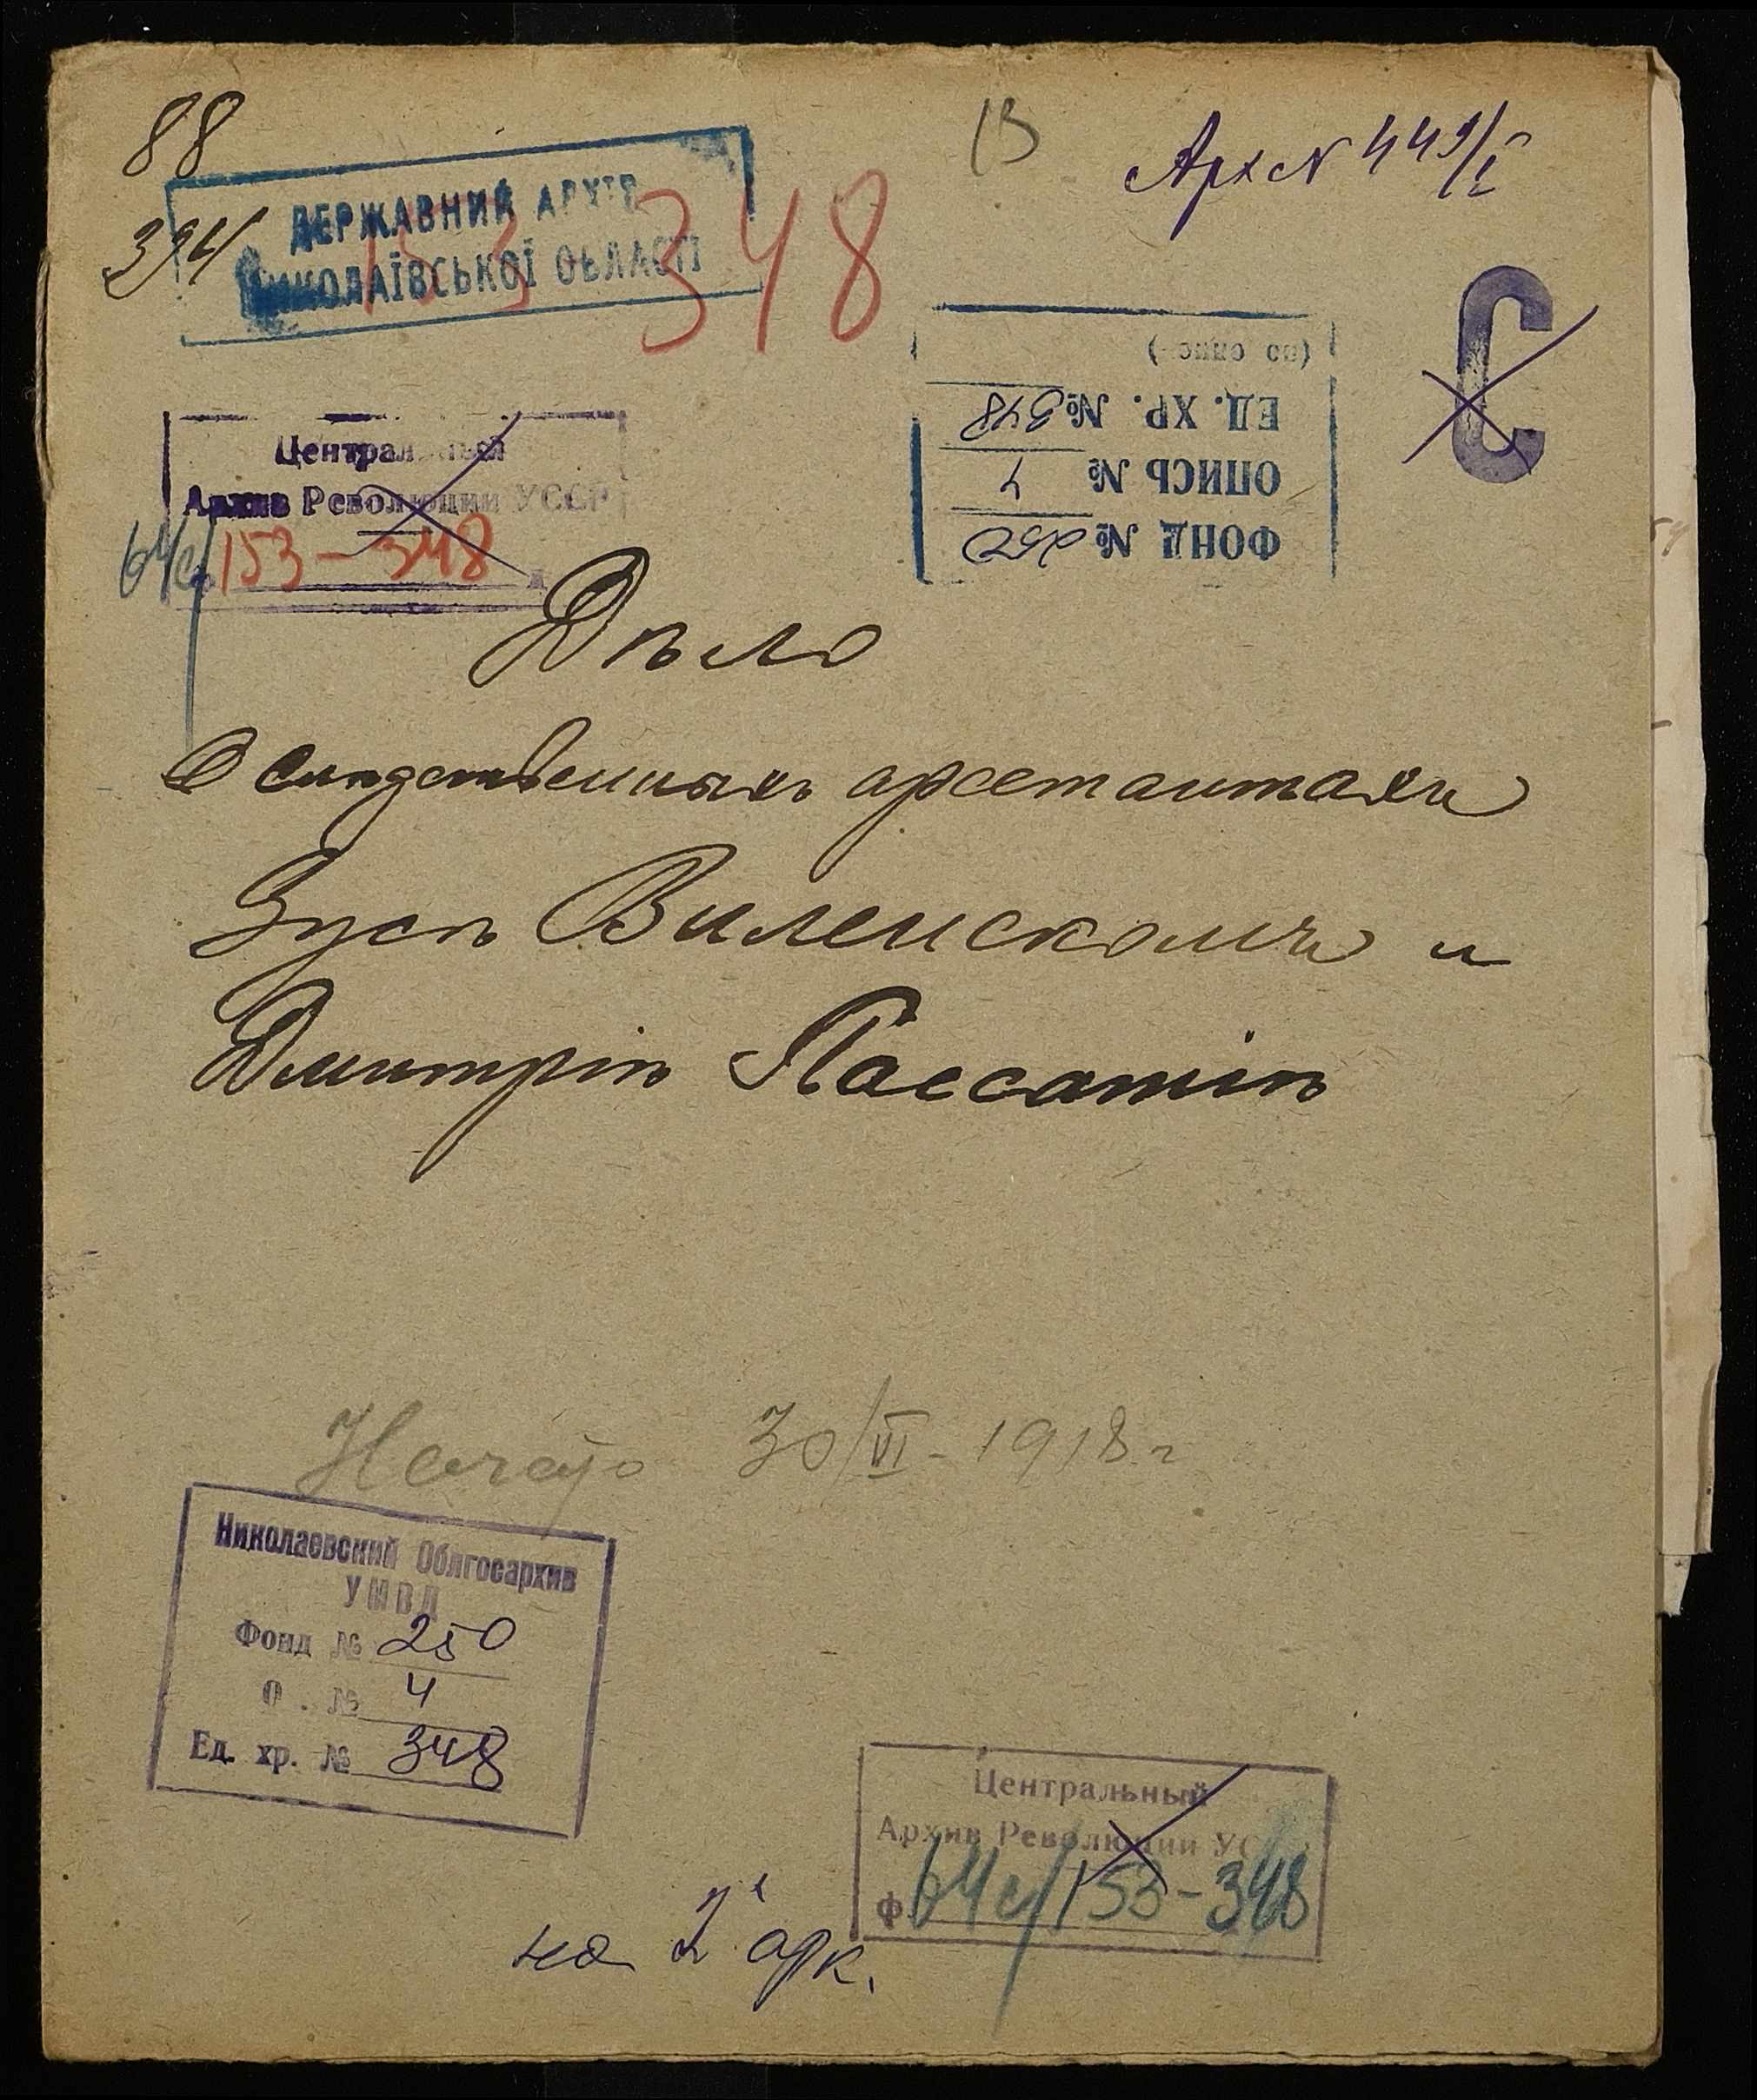 88
394
ДЕРЖАВНИЙ АРХІВ
МИКОЛАЇВСЬКОЇ ОБЛАСТІ
153 348
Арх N 449/I
С
(по описи)
ЕД. ХР. № 348
ОПИСЬ № 4
ФОНД № 250
Центральный
Архив Революции УССР
64с/153-348
Дѣло
О слѣдственныхъ арестантахъ
Зусѣ Виленскомъ и
Дмитріѣ Пассатіѣ
Начато 30/VI - 1918 г
Николаевский Облгосархив
УМВД
Фонд № 250
О. № 4
Ед. хр. № 348
Центральный
Архив Революции УС
Ф. 64с/153-348
на 2 арк.